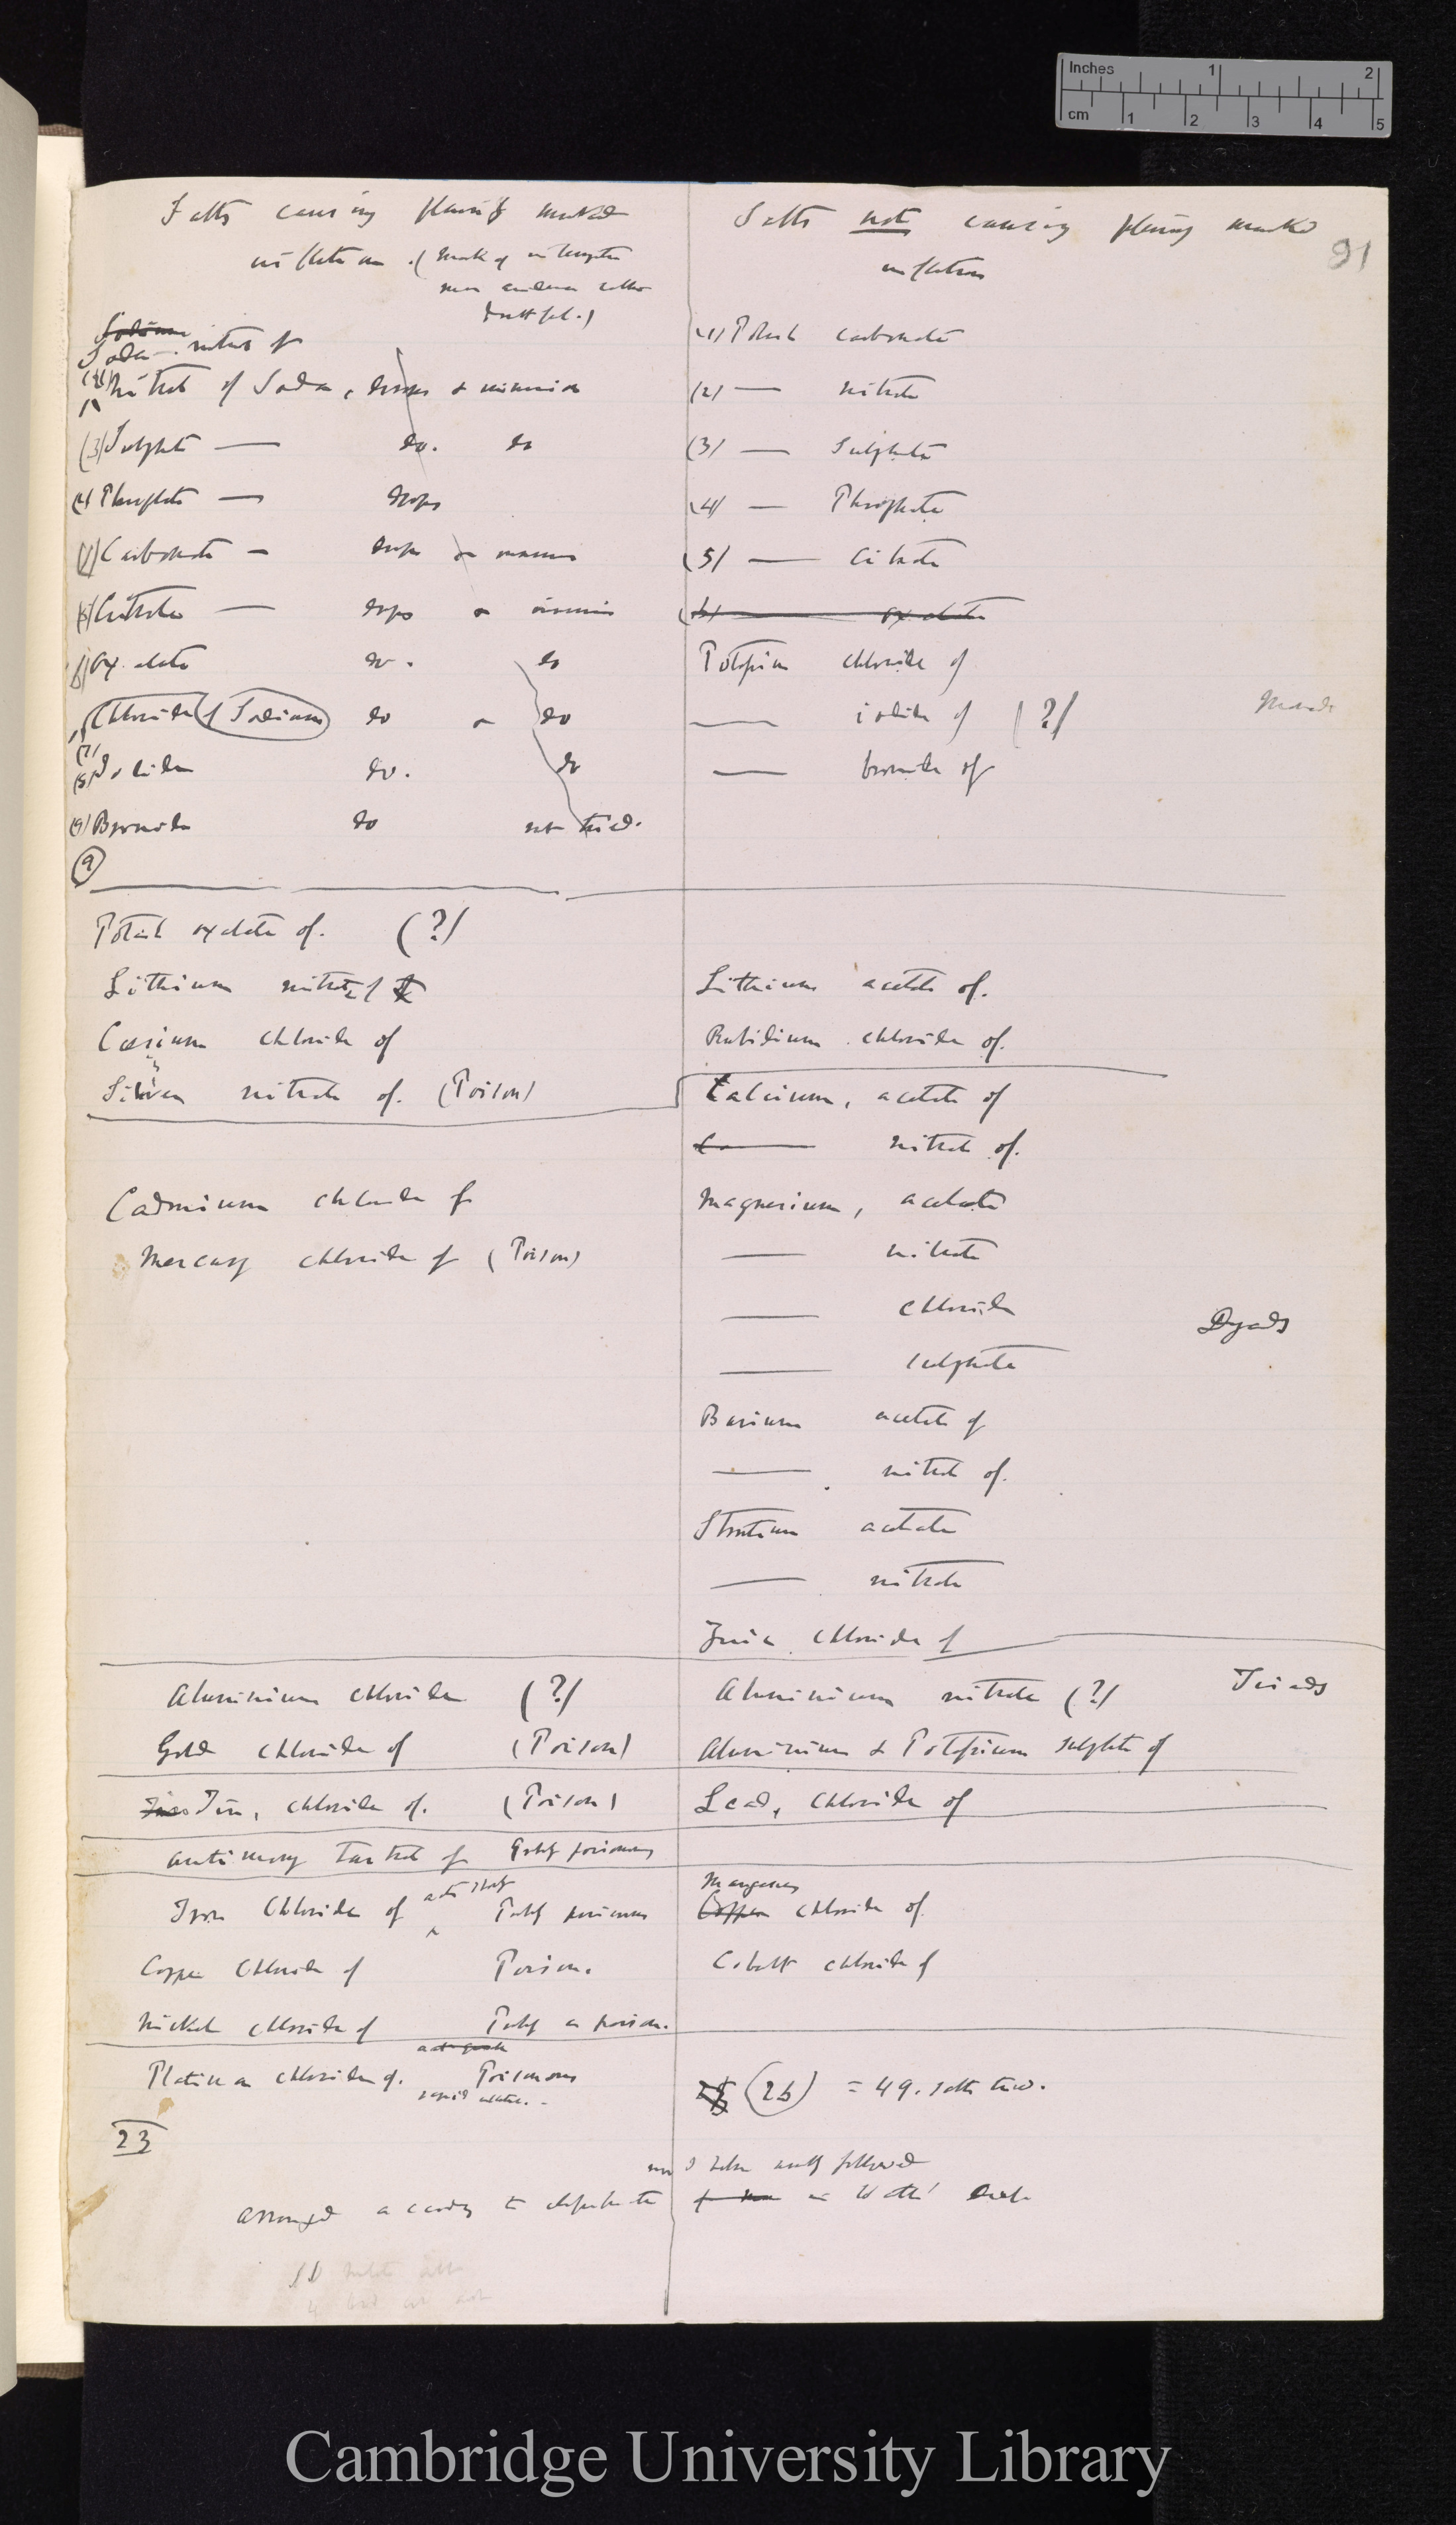 Inches 1 2
cm 1 2 3 4 5
91
Salts causing plainly marked
inflection. (
doubtful.)
Sodium
Soda nitrate of
(2) Nitrate of Soda, drops & minim
(3) Sulphate — do. do
(4) Phosphate — drops
(1) Carbonate — drops & minims
(5) Citrate — drops & minims
(6) Oxalate do. do
Chloride of Sodium do & do
(7)
(8) Iodide do. do
(9) Bromide do not tried.
9
Potash oxalate of. (?)
Lithium nitrate
Caesium chloride of
Silver nitrate of. (Poison)
Cadmium chloride of
Mercury chloride of (Poison)
Aluminium chloride (?)
Gold chloride of (Poison)
Tin, chloride of. (Poison)
Antimony tartrate of Probly poisonous
Iron Chloride of Probly poisonous
Copper Chloride of Poison.
Nickel chloride of Probly a poison.
Platinum chloride of. Poisonous
rapid action.
23
Salts not causing plainly marked
inflection
(1) Potash carbonate
(2) — nitrate
(3) — Sulphate
(4) — Phosphate
(5) — Citrate
(6) — oxalate
Potassium chloride of
— iodide of (?)
— bromide of
Monads
Lithium acetate of.
Rubidium chloride of.
Calcium, acetate of
— nitrate of.
Magnesium, acetate
— nitrate
— chloride
— sulphate
Dyads
Barium acetate of
— nitrate of.
Strontium acetate
— nitrate
Zinc chloride of
Aluminium nitrate (?) Triads
Aluminium & Potassium sulphate of
Lead, chloride of
Manganese
Copper chloride of
Cobalt chloride of
(26) = 49. salts tried.
arranged according to
Cambridge University Library